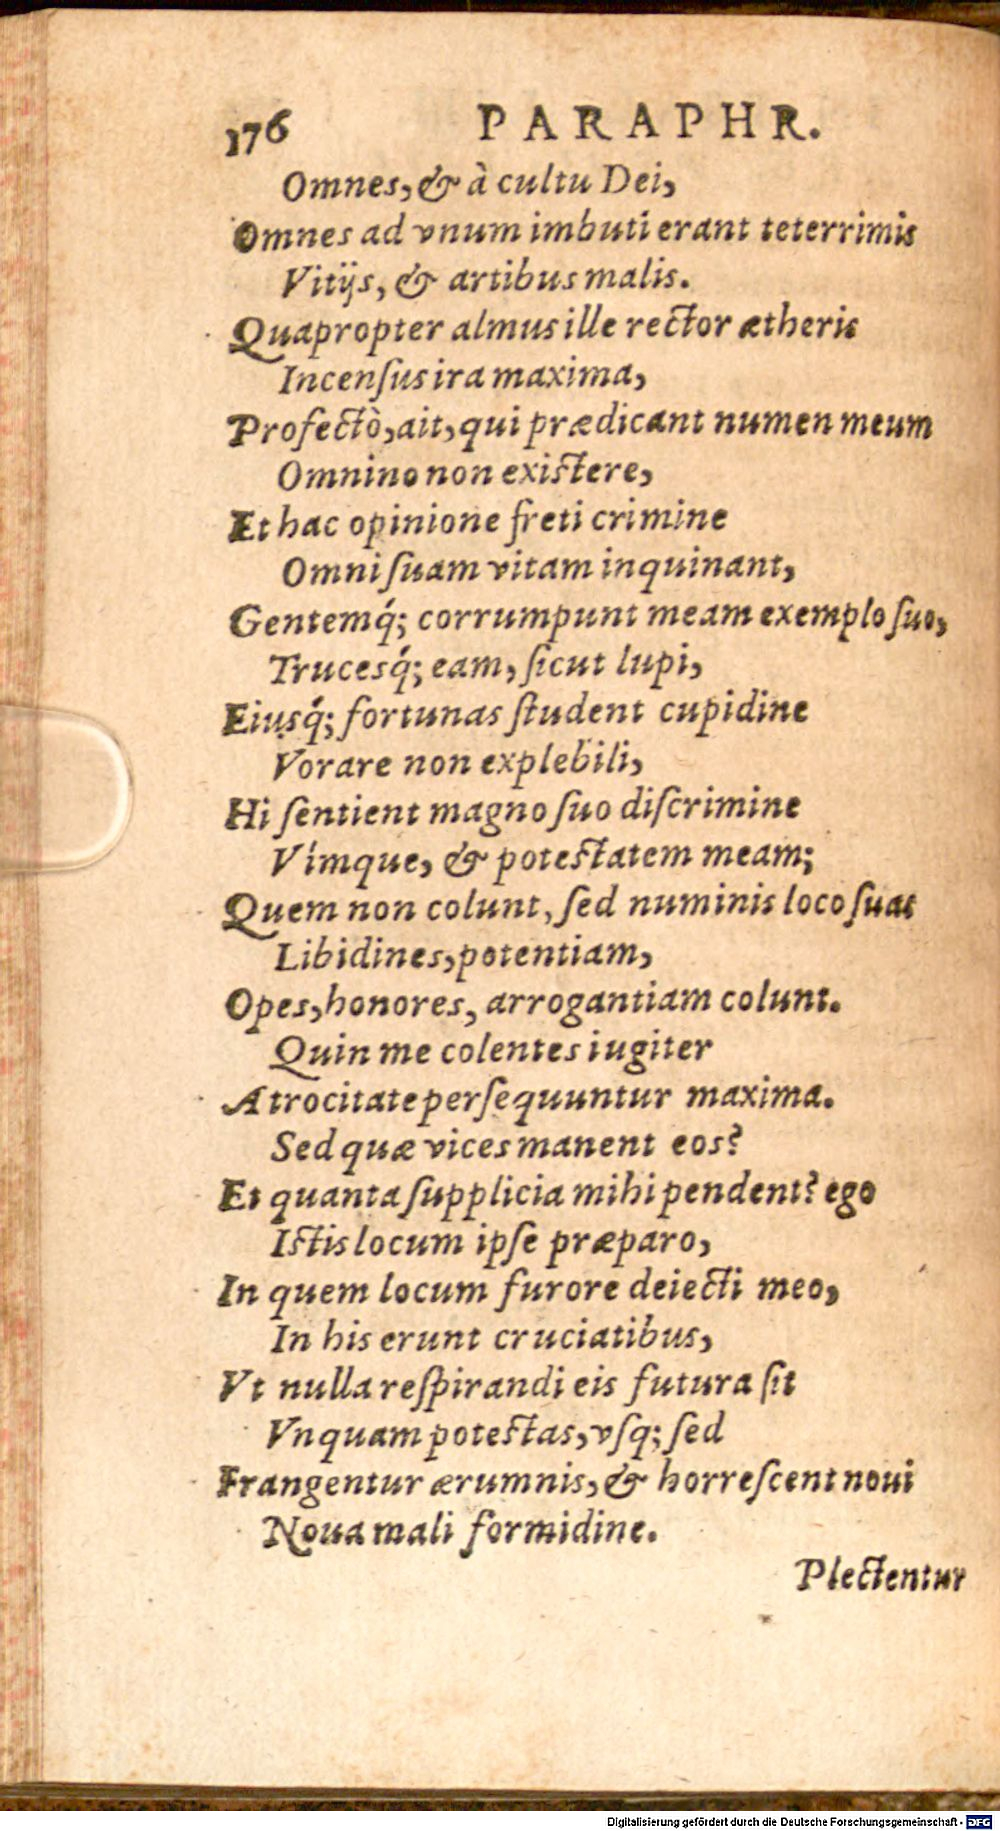 176 PARAPHR.
Omnes, & à cultu Dei,
Omnes ad vnum imbuti erant teterrimis
Vitijs, & artibus malis.
Quapropter almus ille rector ætheris
Incenſus ira maxima,
Profectò, ait, qui prædicant numen meum
Omnino non exiſtere,
Et hac opinione freti crimine
Omni ſuam vitam inquinant,
Gentemq́; corrumpunt meam exemplo ſuo,
Trucesq́; eam, ſicut lupi,
Eiusq́; fortunas ſtudent cupidine
Vorare non explebili,
Hi ſentient magno ſuo diſcrimine
Vimque, & poteſtatem meam;
Quem non colunt, ſed numinis loco ſuas
Libidines, potentiam,
Opes, honores, arrogantiam colunt.
Quin me colentes iugiter
Atrocitate perſequuntur maxima.
Sed quæ vices manent eos?
Et quanta ſupplicia mihi pendent? ego
Iſtis locum ipſe præparo,
In quem locum furore deiecti meo,
In his erunt cruciatibus,
Vt nulla reſpirandi eis futura ſit
Vnquam poteſtas, vſq; ſed
Frangentur ærumnis, & horreſcent noui
Noua mali formidine.
Plectentur
Digitalisierung gefördert durch die Deutsche Forschungsgemeinschaft - DFG